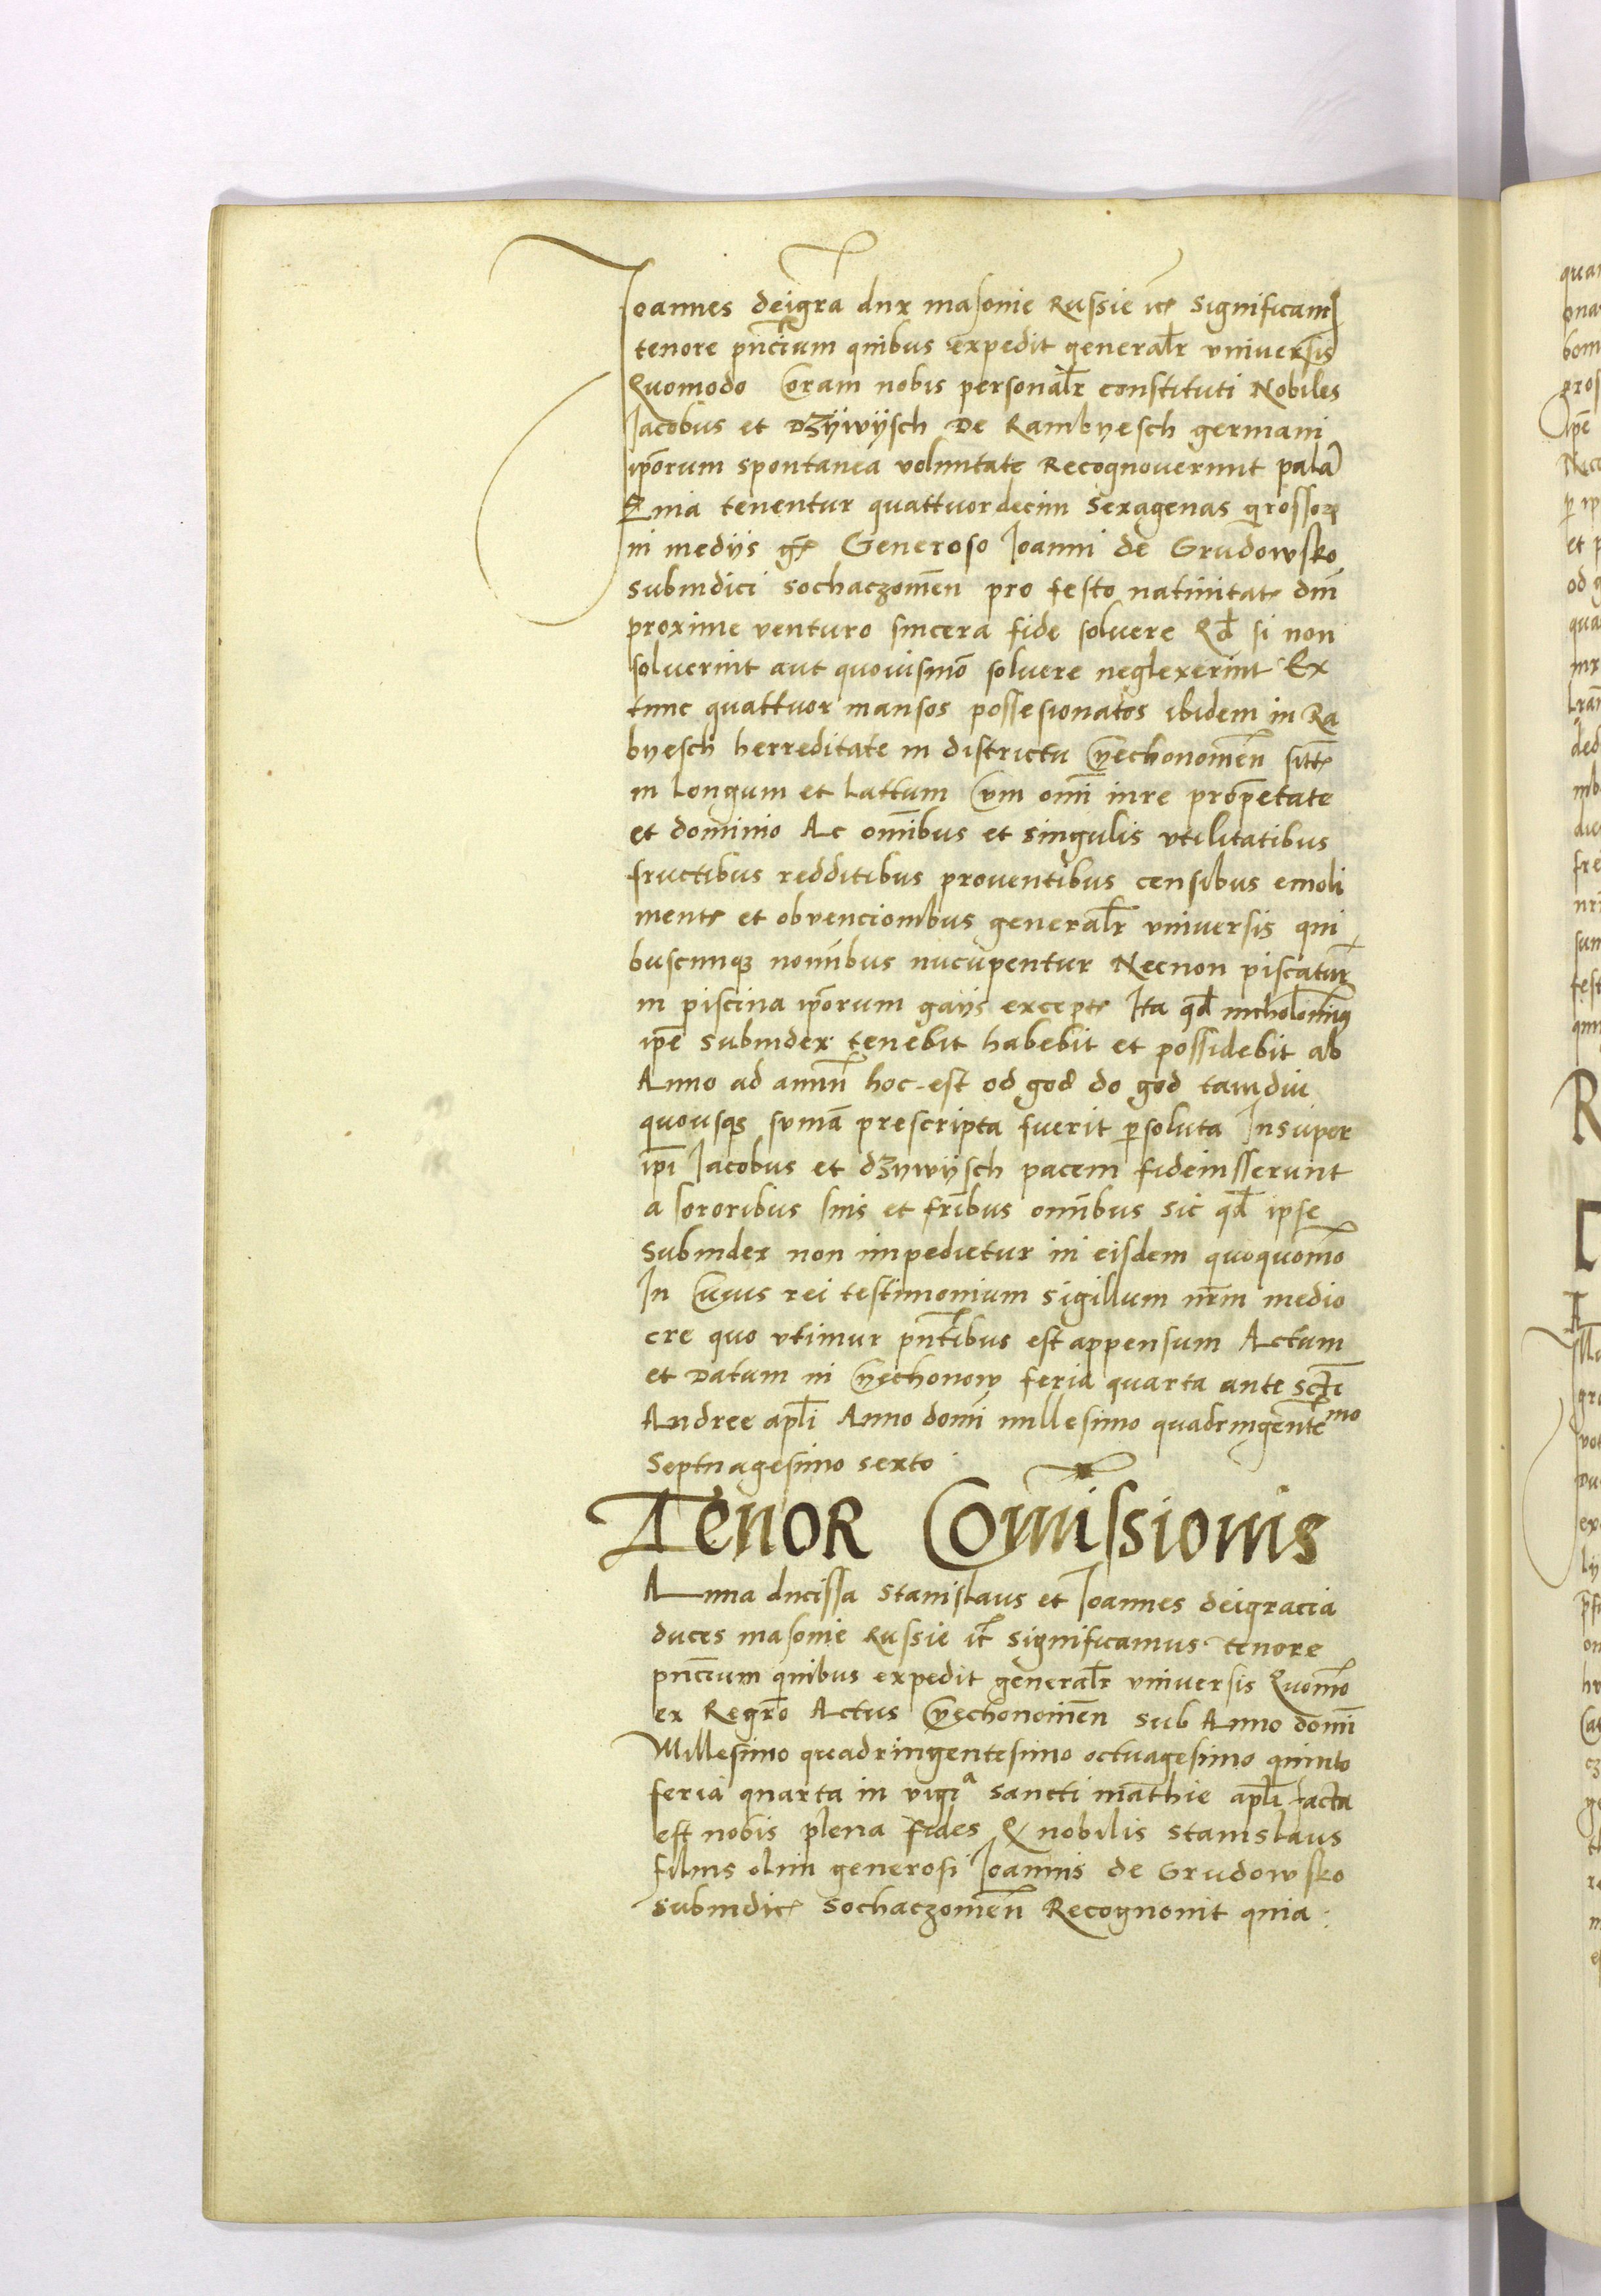 Joannes deigra dux masovie Russie etc Significam9
tenore pnciüm quibus expedit generalr vniversis
Quomodo Coram nobis personalr constituti Nobiles
Jacobus et Dzÿwÿsch De Rambyesch germani
ipōrum spontanea voluntate Recognoverunt palā
Quia tenentur quattuordecim Sexagenas grossorꝝ
in medijs gr Generoso Joanni de Grudowsko
subiudici sochaczovień pro festo nativitatꝭ dni
proxime venturo sincera fide soluere Qđ si non
soluerint aut quovismō soluere neglexerint Ex
tunc quattuor mansos possesionatos ibidem in Ra
byesch herreditate in districtu Cyechonovień sittꝭ
in Longum et Lattum Cum omi iure propetate
et dominio Ac omibus et singulis vtilitatibus
fructibus redditibus proventibus censibus emoli
mentꝭ et obvencionibus generalr vniversis qui
buscunqꝫ nomibus nucupentur Necnon piscatur
in piscina ipōrum gaijs exceptꝭ Ita qđ
ipē Subiudex tenebit habebit et possidebit ab
Anno ad annū hoc est od god do god tamdiu
quousqꝫ sumā prescripta fuerit psoluta Insuper
ipi Jacobus et dzywÿsch pacem fideiusserunt
a sororibus suis et fribus omibus sic qđ ipse
Subiudex non impedietur in eisdem quoquomō
In Cuyus rei testimonium sigillum nrm medio
cre quo vtimur pntibus est appensum Actum
et Datum in Cyechonow feria quarta ante scti
Andree apli Anno domi millesimo quadringentēmo
Septuagesimo sexto
Tenor Comissionis
Anna ducissa Stanislaus et Joannes deigracia
duces masovie Russie etc significamus tenore
pnciüm quibus expedit generalr vniversis Quomō
ex Regrō Actus Cyechonovień sub Anno domi
Millesimo quadringentesimo octuagesimo quinto
feria quarta in vigia Sancti mathie apli facta
est nobis plena fides Qꝫ nobilis Stanislaus
filius olim generosi Joannis de Grudowsko
subiudicꝭ Sochaczovień Recognovit quia